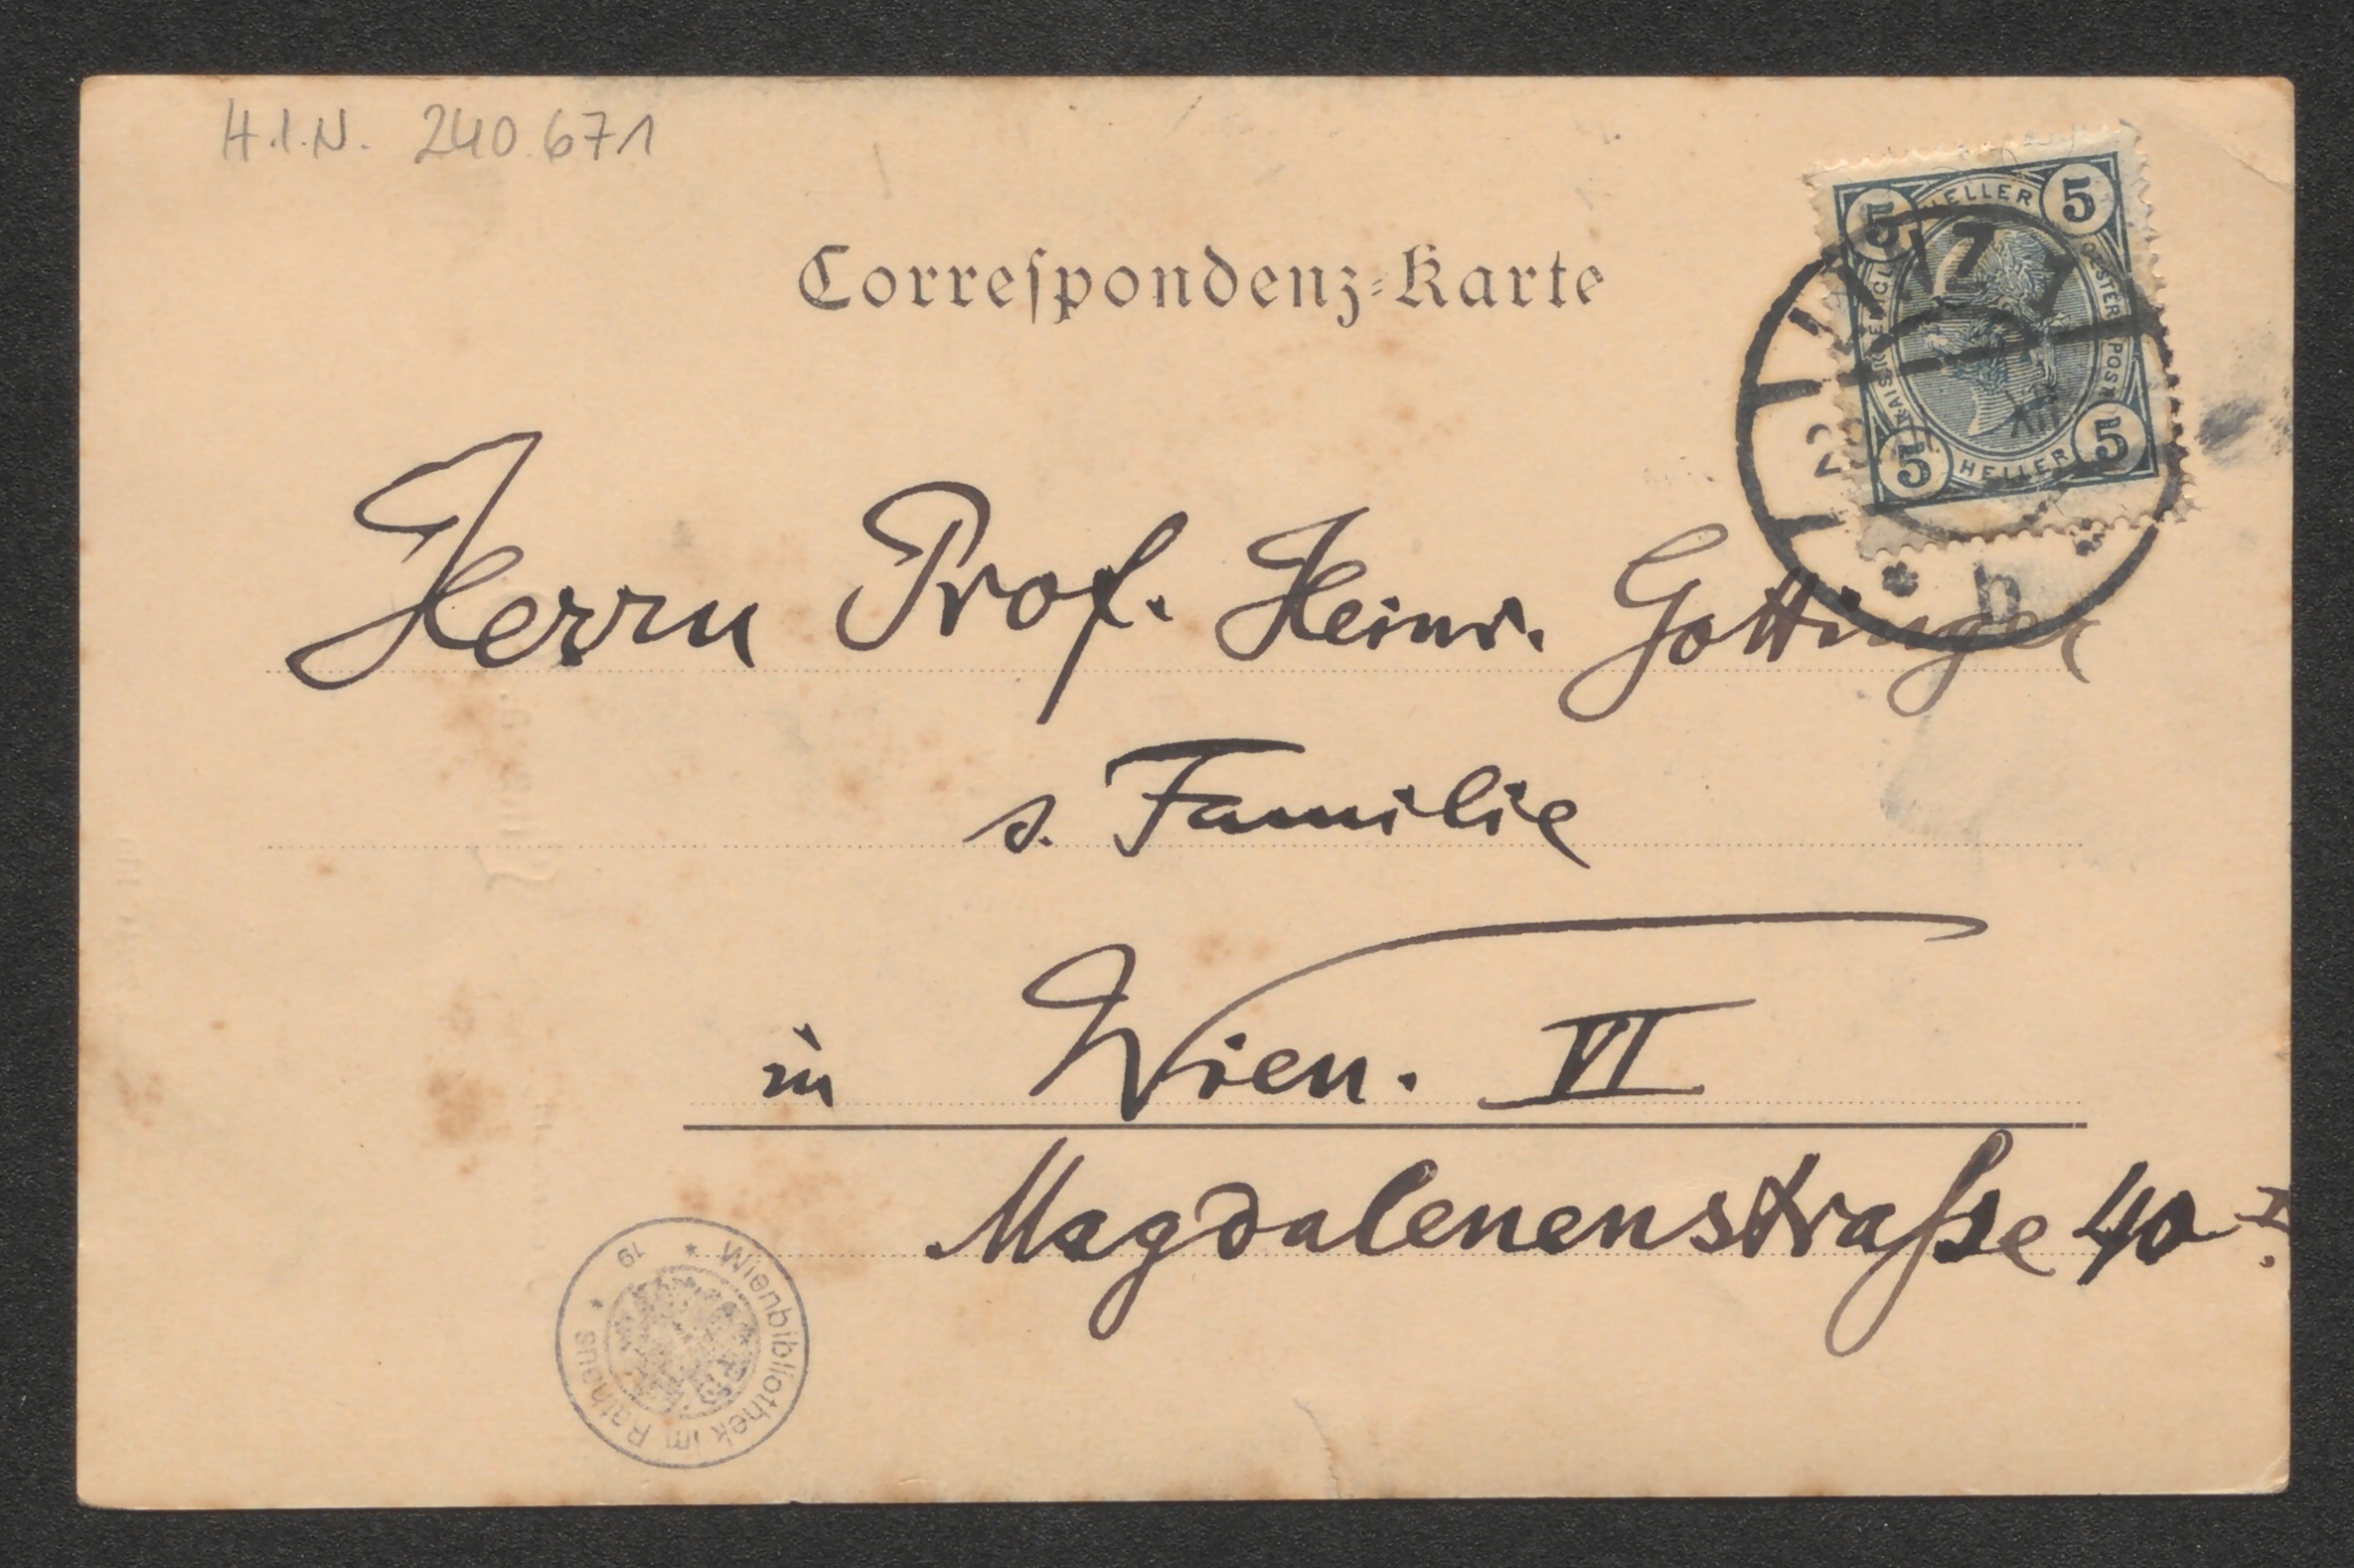 H.I.N. 240.671
Correſpondenz-Karte
5 HELLER 5
LINZ 1
KAIS. KÖNIGL. OESTERR. POST
XII
5 HELLER 5
* b *
Herrn Prof. Heinr. Gottinger
s. Familie
in Wien. VI
Magdalenenstraße 40
* Wienbibliothek im Rathaus * 19